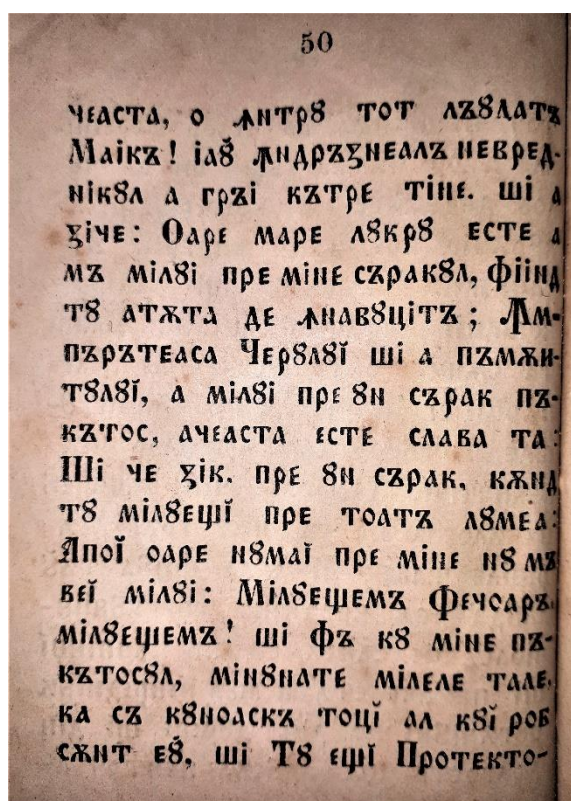 50
чеаста, о ꙟнтрꙋ тот лъꙋдатъ
Маікъ! іаꙋ̆ ꙟндръзнеалъ невред-
нікꙋл а гръі кътре тіне. ші а
зіче: Оаре маре лꙋкрꙋ есте а
мъ мілꙋі пре міне съракꙋл, фіінд
тꙋ атѫта де ꙟнавꙋцітъ; Ꙟм-
пърътеаса Черꙋлꙋї ші а пъмѫн-
тꙋлꙋї, а мілꙋі пре ꙋн сърак пъ-
кътос, ачеаста есте слава та:
Ші че зік. пре ꙋн сърак, кѫнд
тꙋ мілꙋещї пре тоатъ лꙋмеа:
Апої оаре нꙋмаї пре міне нꙋ мъ
веї мілꙋі: Мілꙋещемъ Фечоаръ.
мілꙋещемъ! ші фъ кꙋ міне пъ-
кътосꙋл, мінꙋнате мілеле тале,
ка съ кꙋноаскъ тоці ал кꙋї роб
сѫнт еꙋ̆, ші Тꙋ ещї Протекто-